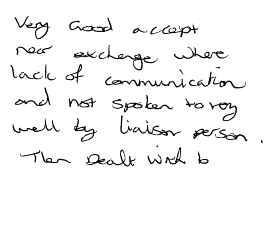 Very Good accept
near exchange where
lack of communication
and not spoken to very
well by liaison person.
Then Dealt with b